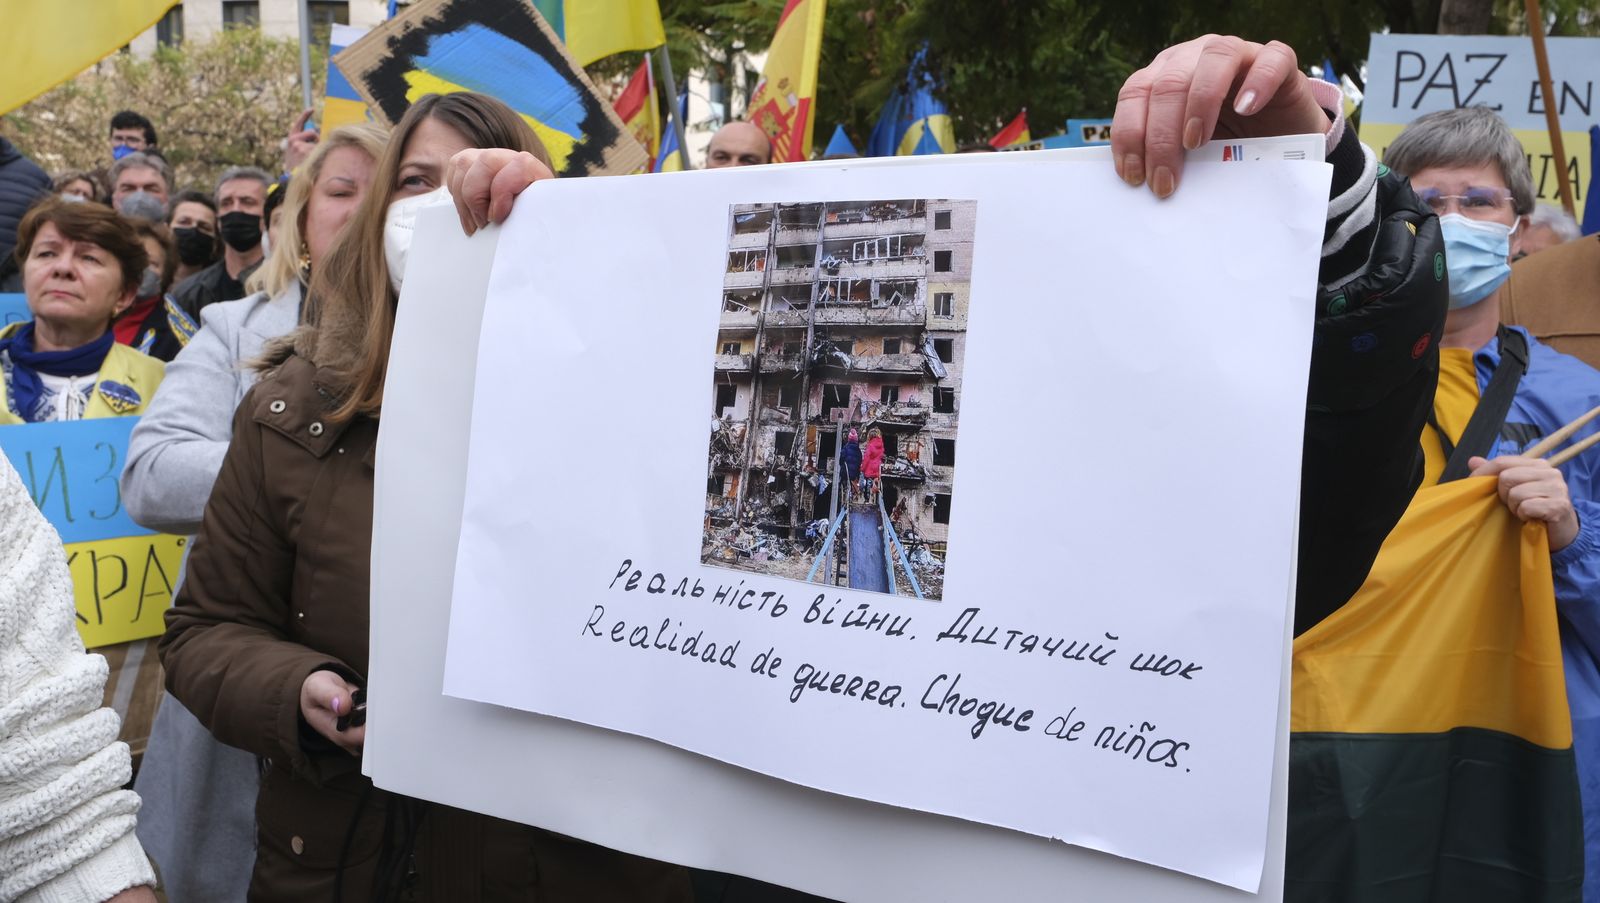 PAZ EN
ИЗ
КРА
Реальність війни. Дитячий шок
Realidad de guerra. Choque de niños.